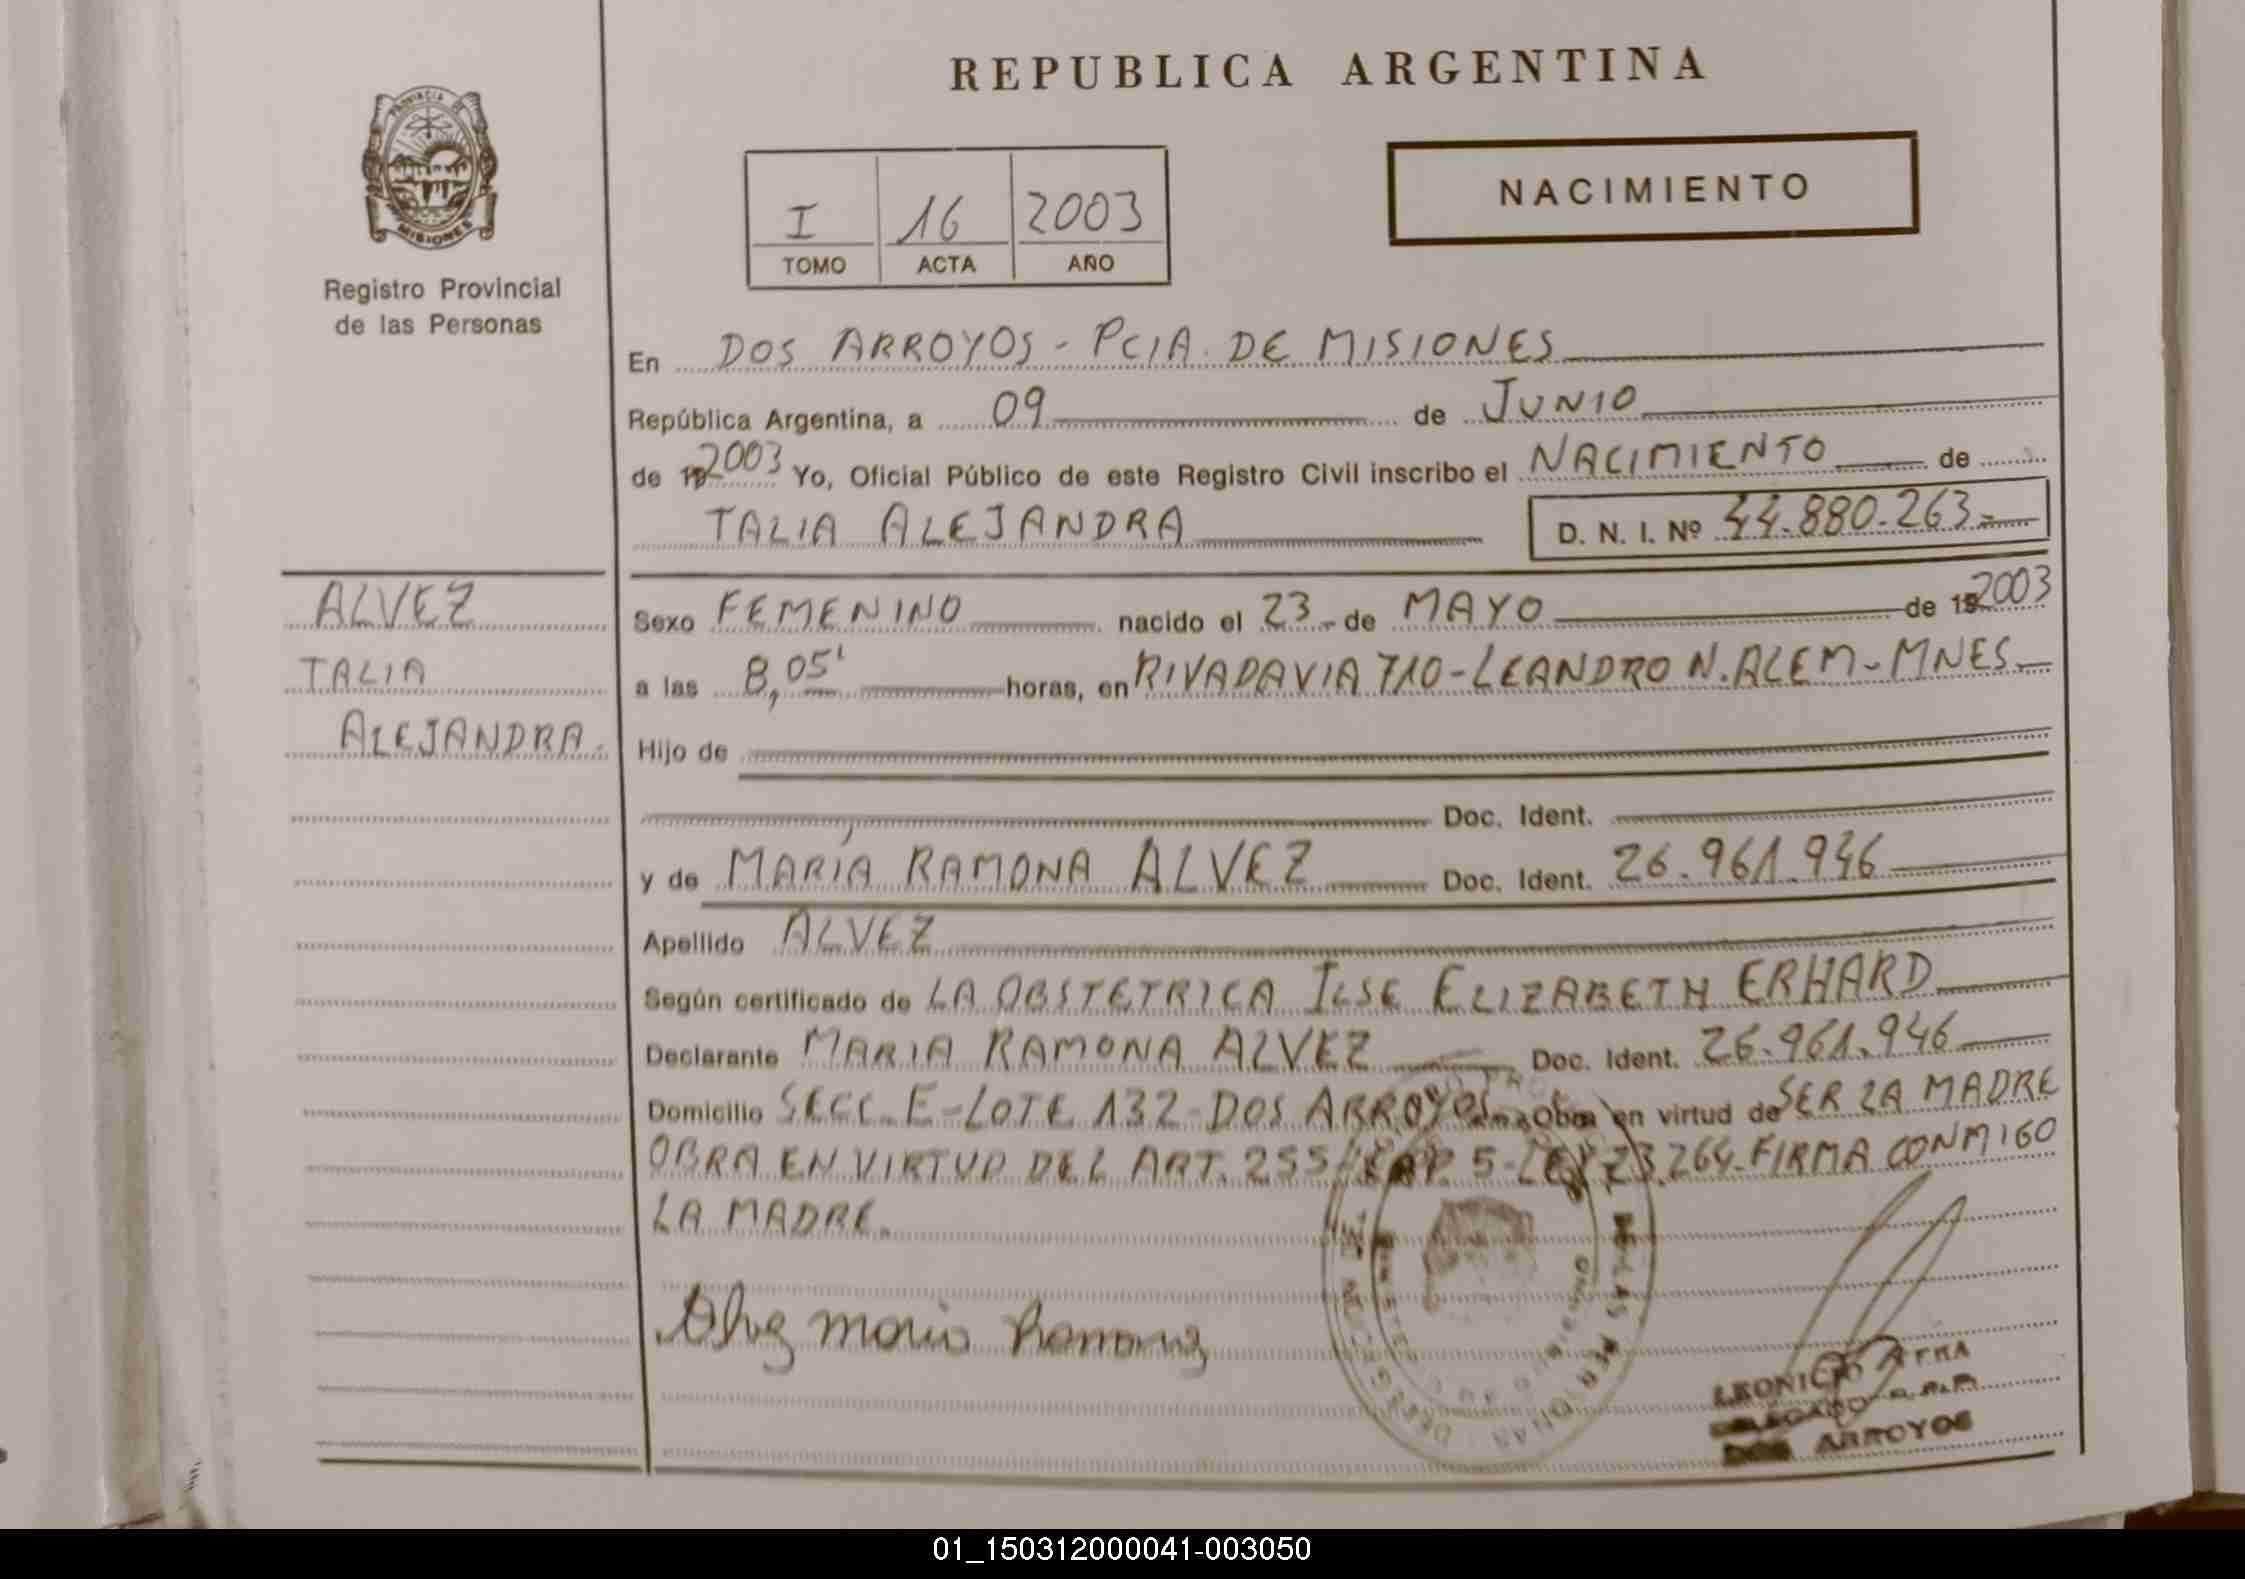 REPUBLICA ARGENTINA
PROVINCIA DE
MISIONES
Registro Provincial
de las Personas
I 16 2003
TOMO ACTA AÑO
NACIMIENTO
En DOS ARROYOS - PCIA. DE MISIONES
República Argentina, a 09 de JUNIO
de 19 2003 Yo, Oficial Público de este Registro Civil inscribo el NACIMIENTO de
TALIA ALEJANDRA D. N. I. Nº 44.880.263.-
ALVEZ
TALIA
ALEJANDRA.
Sexo FEMENINO nacido el 23 - de MAYO de 19 2003
a las 8,05' horas, en RIVADAVIA 710 - LEANDRO N. ALEM - MNES.
Hijo de
Doc. Ident.
y de MARÍA RAMONA ALVEZ Doc. Ident. 26.961.946
Apellido ALVEZ
Según certificado de LA OBSTETRICA ILSE ELIZABETH ERHARD
Declarante MARIA RAMONA ALVEZ Doc. Ident. 26.961.946
Domicilio SECC. E - LOTE 132 - DOS ARROYOS Obra en virtud de SER LA MADRE
OBRA EN VIRTUD DEL ART. 255 / CAP. 5 - LEY 23.264 - FIRMA CONMIGO
LA MADRE.
Alvez Maria Ramona
DOS ARROYOS
01_150312000041-003050